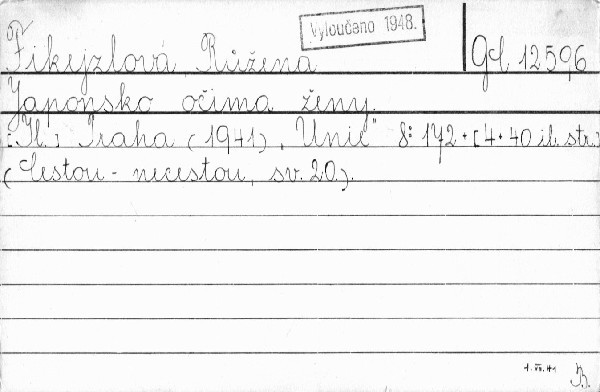 Vyloučano 1948.
Fikejzlová Růžena Gd 12596
Japonsko očima ženy.
[Il.] Praha (1941), „Unie" 8: 172 + [4 + 40 il. str.]
(Cestou - necestou, sv. 20.).
1. VII. 41